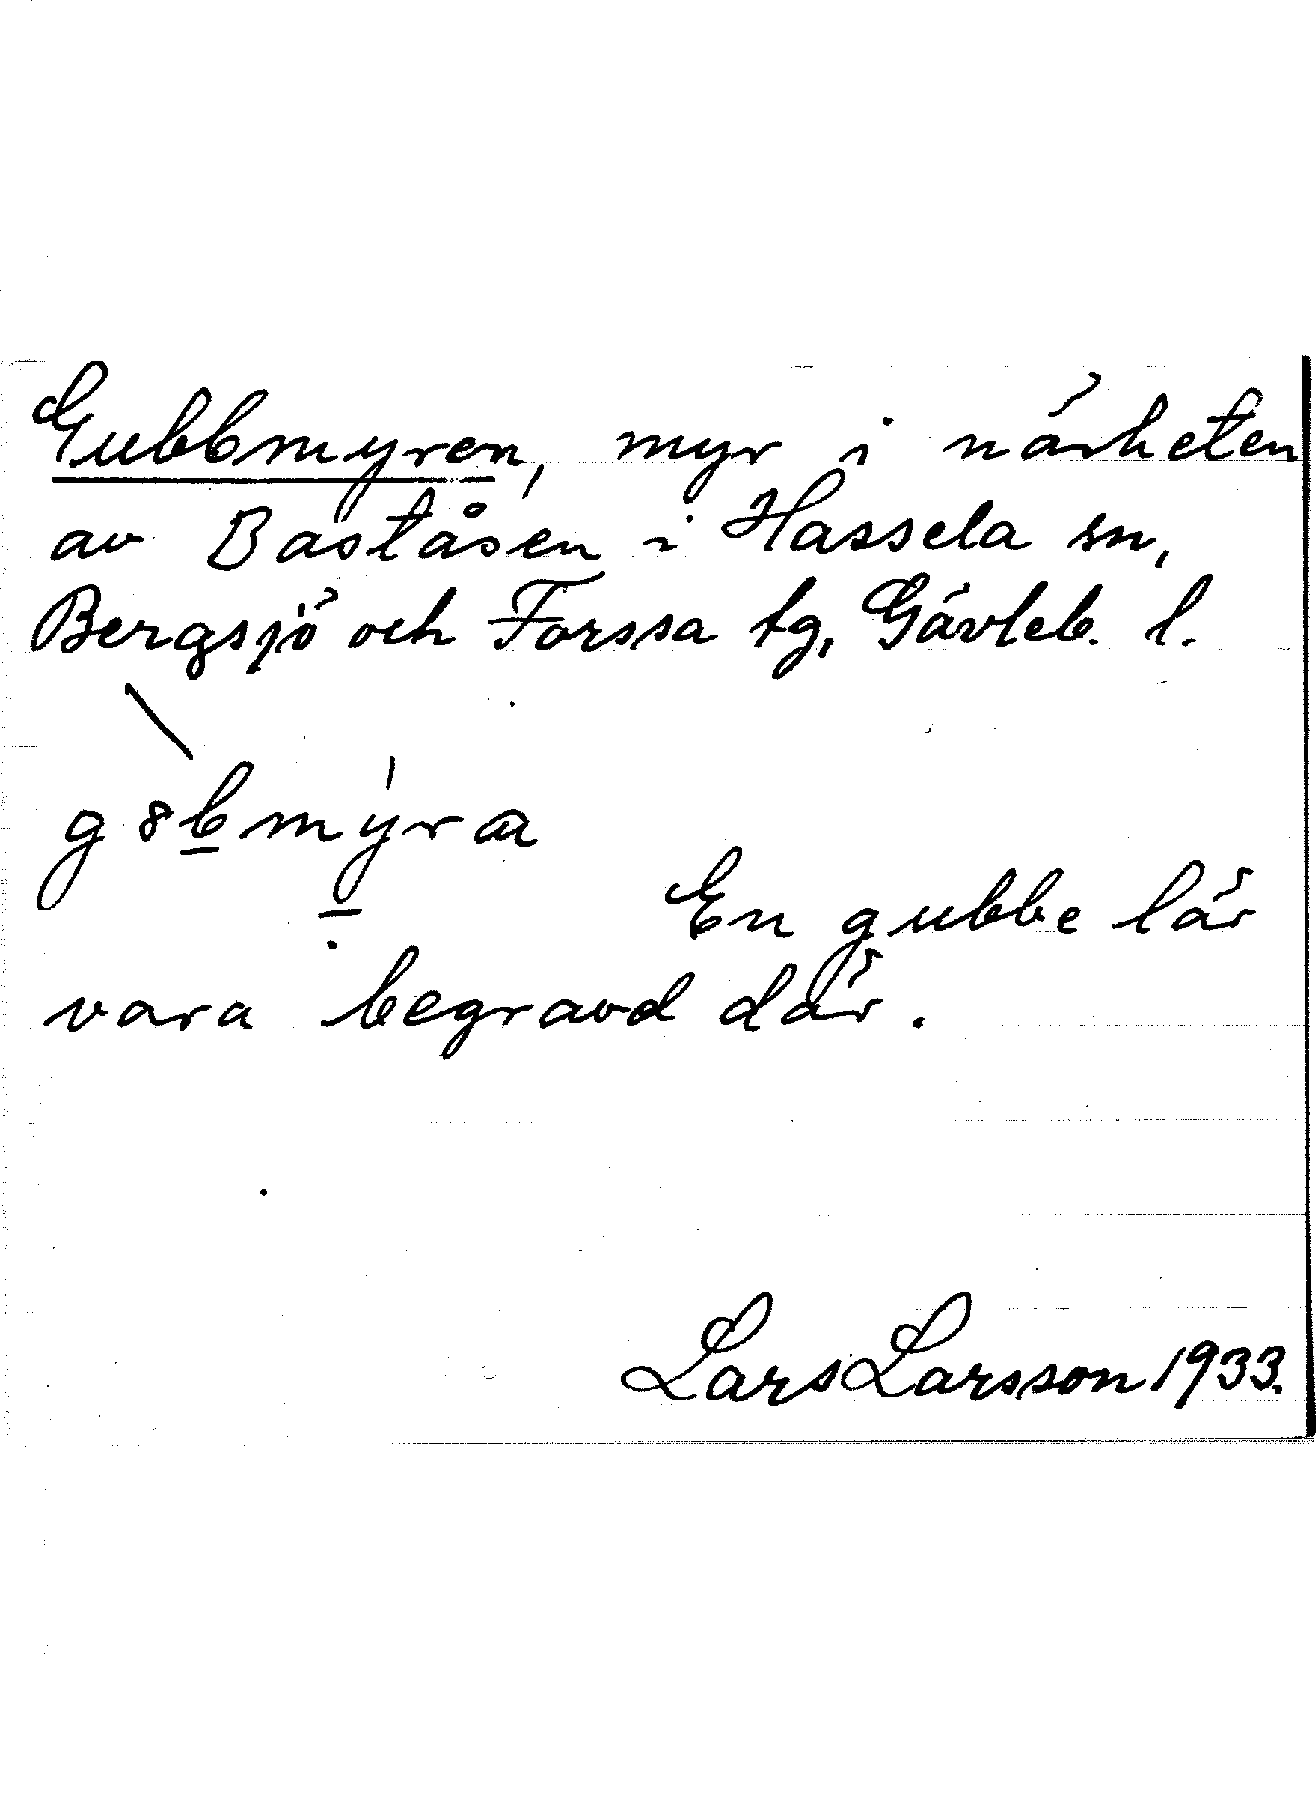 Gubbmyren, myr i närheten
av Baståsen i Hassela sn,
Bergsjö och Forssa tg, Gävleb. l.
g8bmýra
En gubbe lär
vara begravd där.
Lars Larsson 1933.